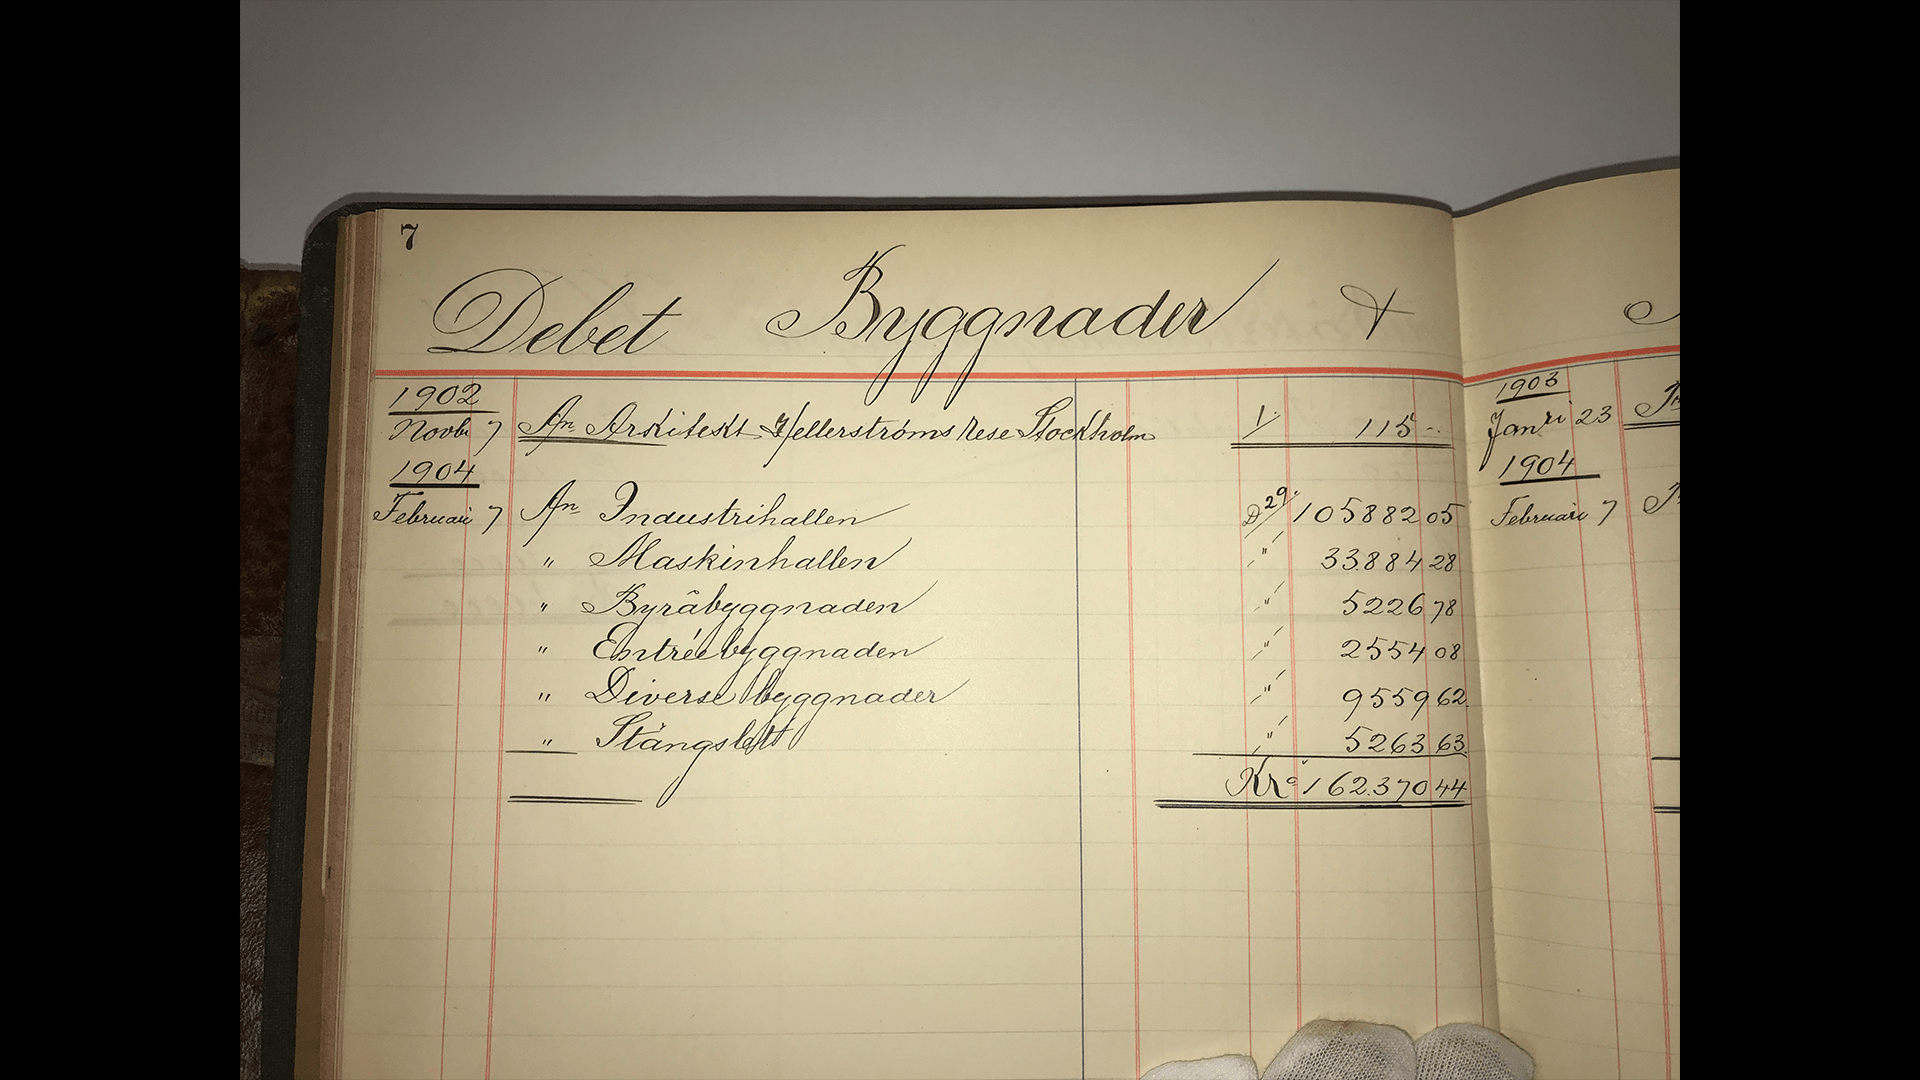 7
Debet Byggnader
1902
Novbr 7 An Arkitekt Hellerströms rese Stockholm 1. 115 --
1904
Februari 7 An Industrihallen D 29. 105882 05
" Maskinhallen " 33.884 28
" Byråbyggnaden " 5226 78
" Entréebyggnaden " 2554 08
" Diverse byggnader " 9559 62.
" Stängslett " 5263 63.
Kr. 162.370 44
1903
Janri 23
1904
Februari 7